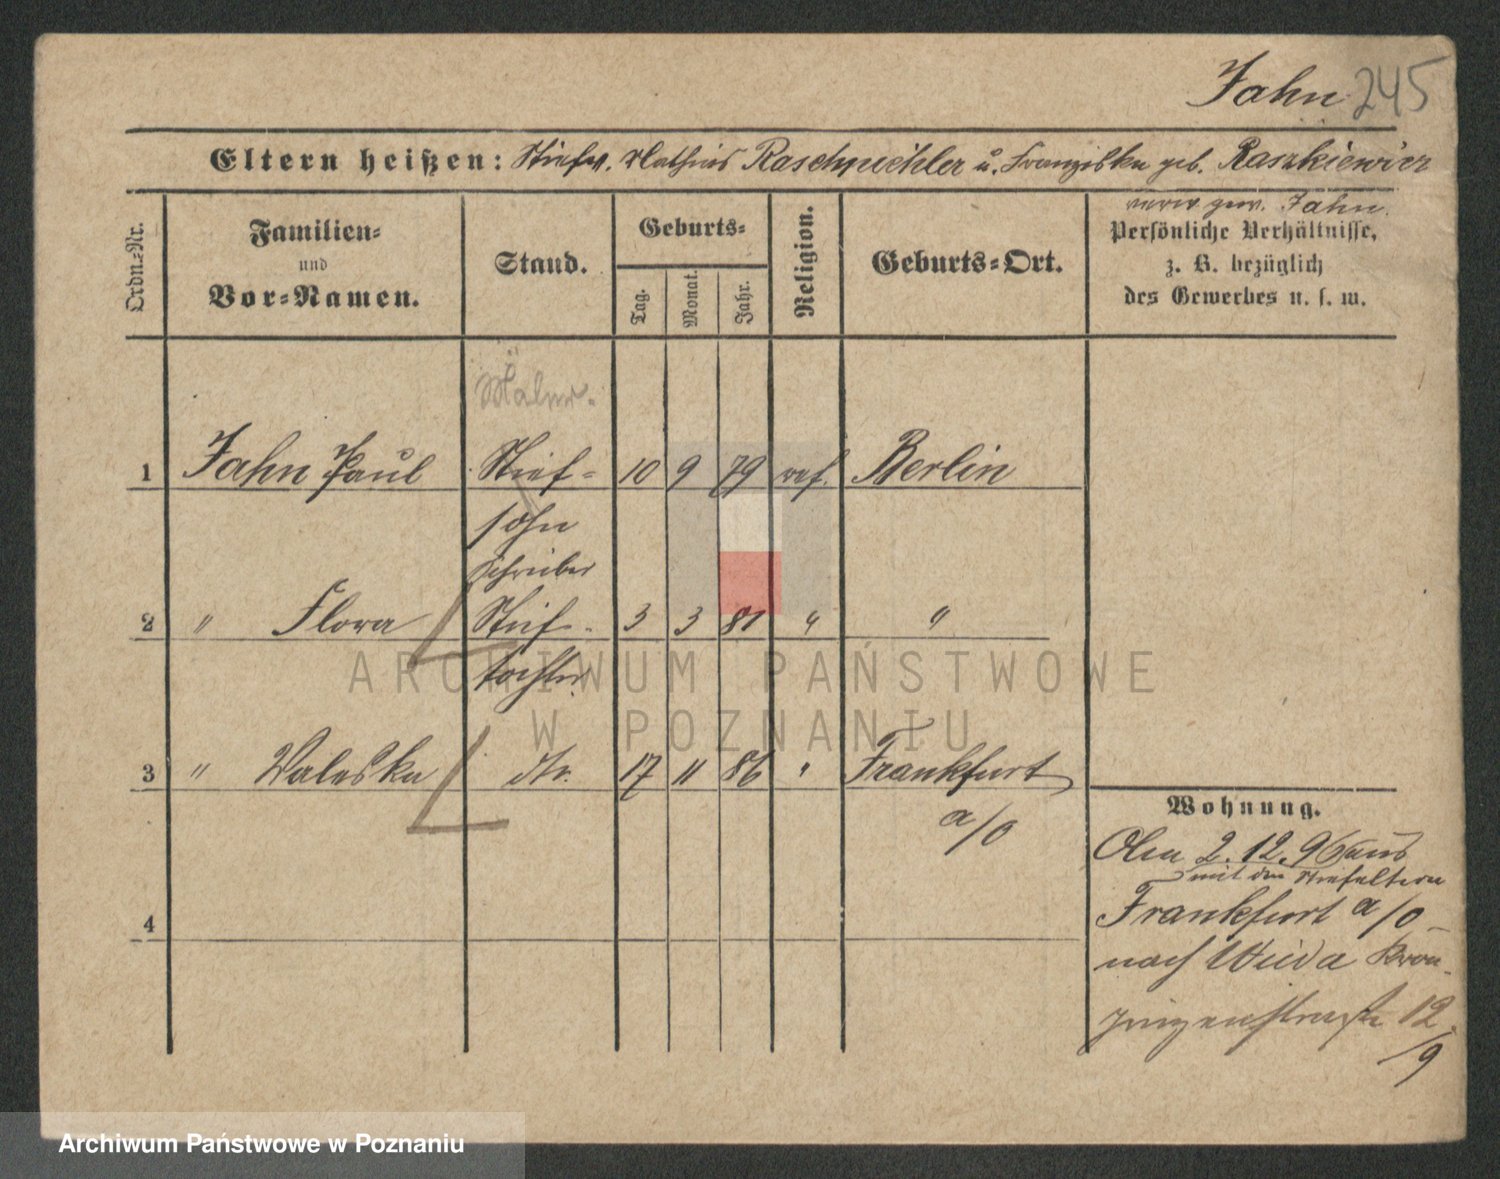 Jahn 245
Eltern heißen: Stiefv. Mathias Raschpichler u. Franziska geb. Raszkiewicz
verw. gew. Jahn.
Ordn.-Nr.
Familien-
und
Vor-Namen.
Stand.
Geburts-
Tag.
Monat.
Jahr.
Religion.
Geburts-Ort.
Persönliche Verhältnisse,
z. B. bezüglich
des Gewerbes u. s. w.
Maler.
1 Jahn Paul Stief- 10 9 79 ref. Berlin
sohn
Schreiber
2 " Flora Stief- 3 3 81 " "
tochter.
3 " Waleska dto. 17 11 86 " Frankfurt
a/O
4
Wohnung.
2. 12. 96 aus
mit den Stiefeltern
Frankfurt a/O
nach Wilda Kron-
prinzenstraße 12
/9
ARCHIWUM PAŃSTWOWE
W POZNANIU
Archiwum Państwowe w Poznaniu